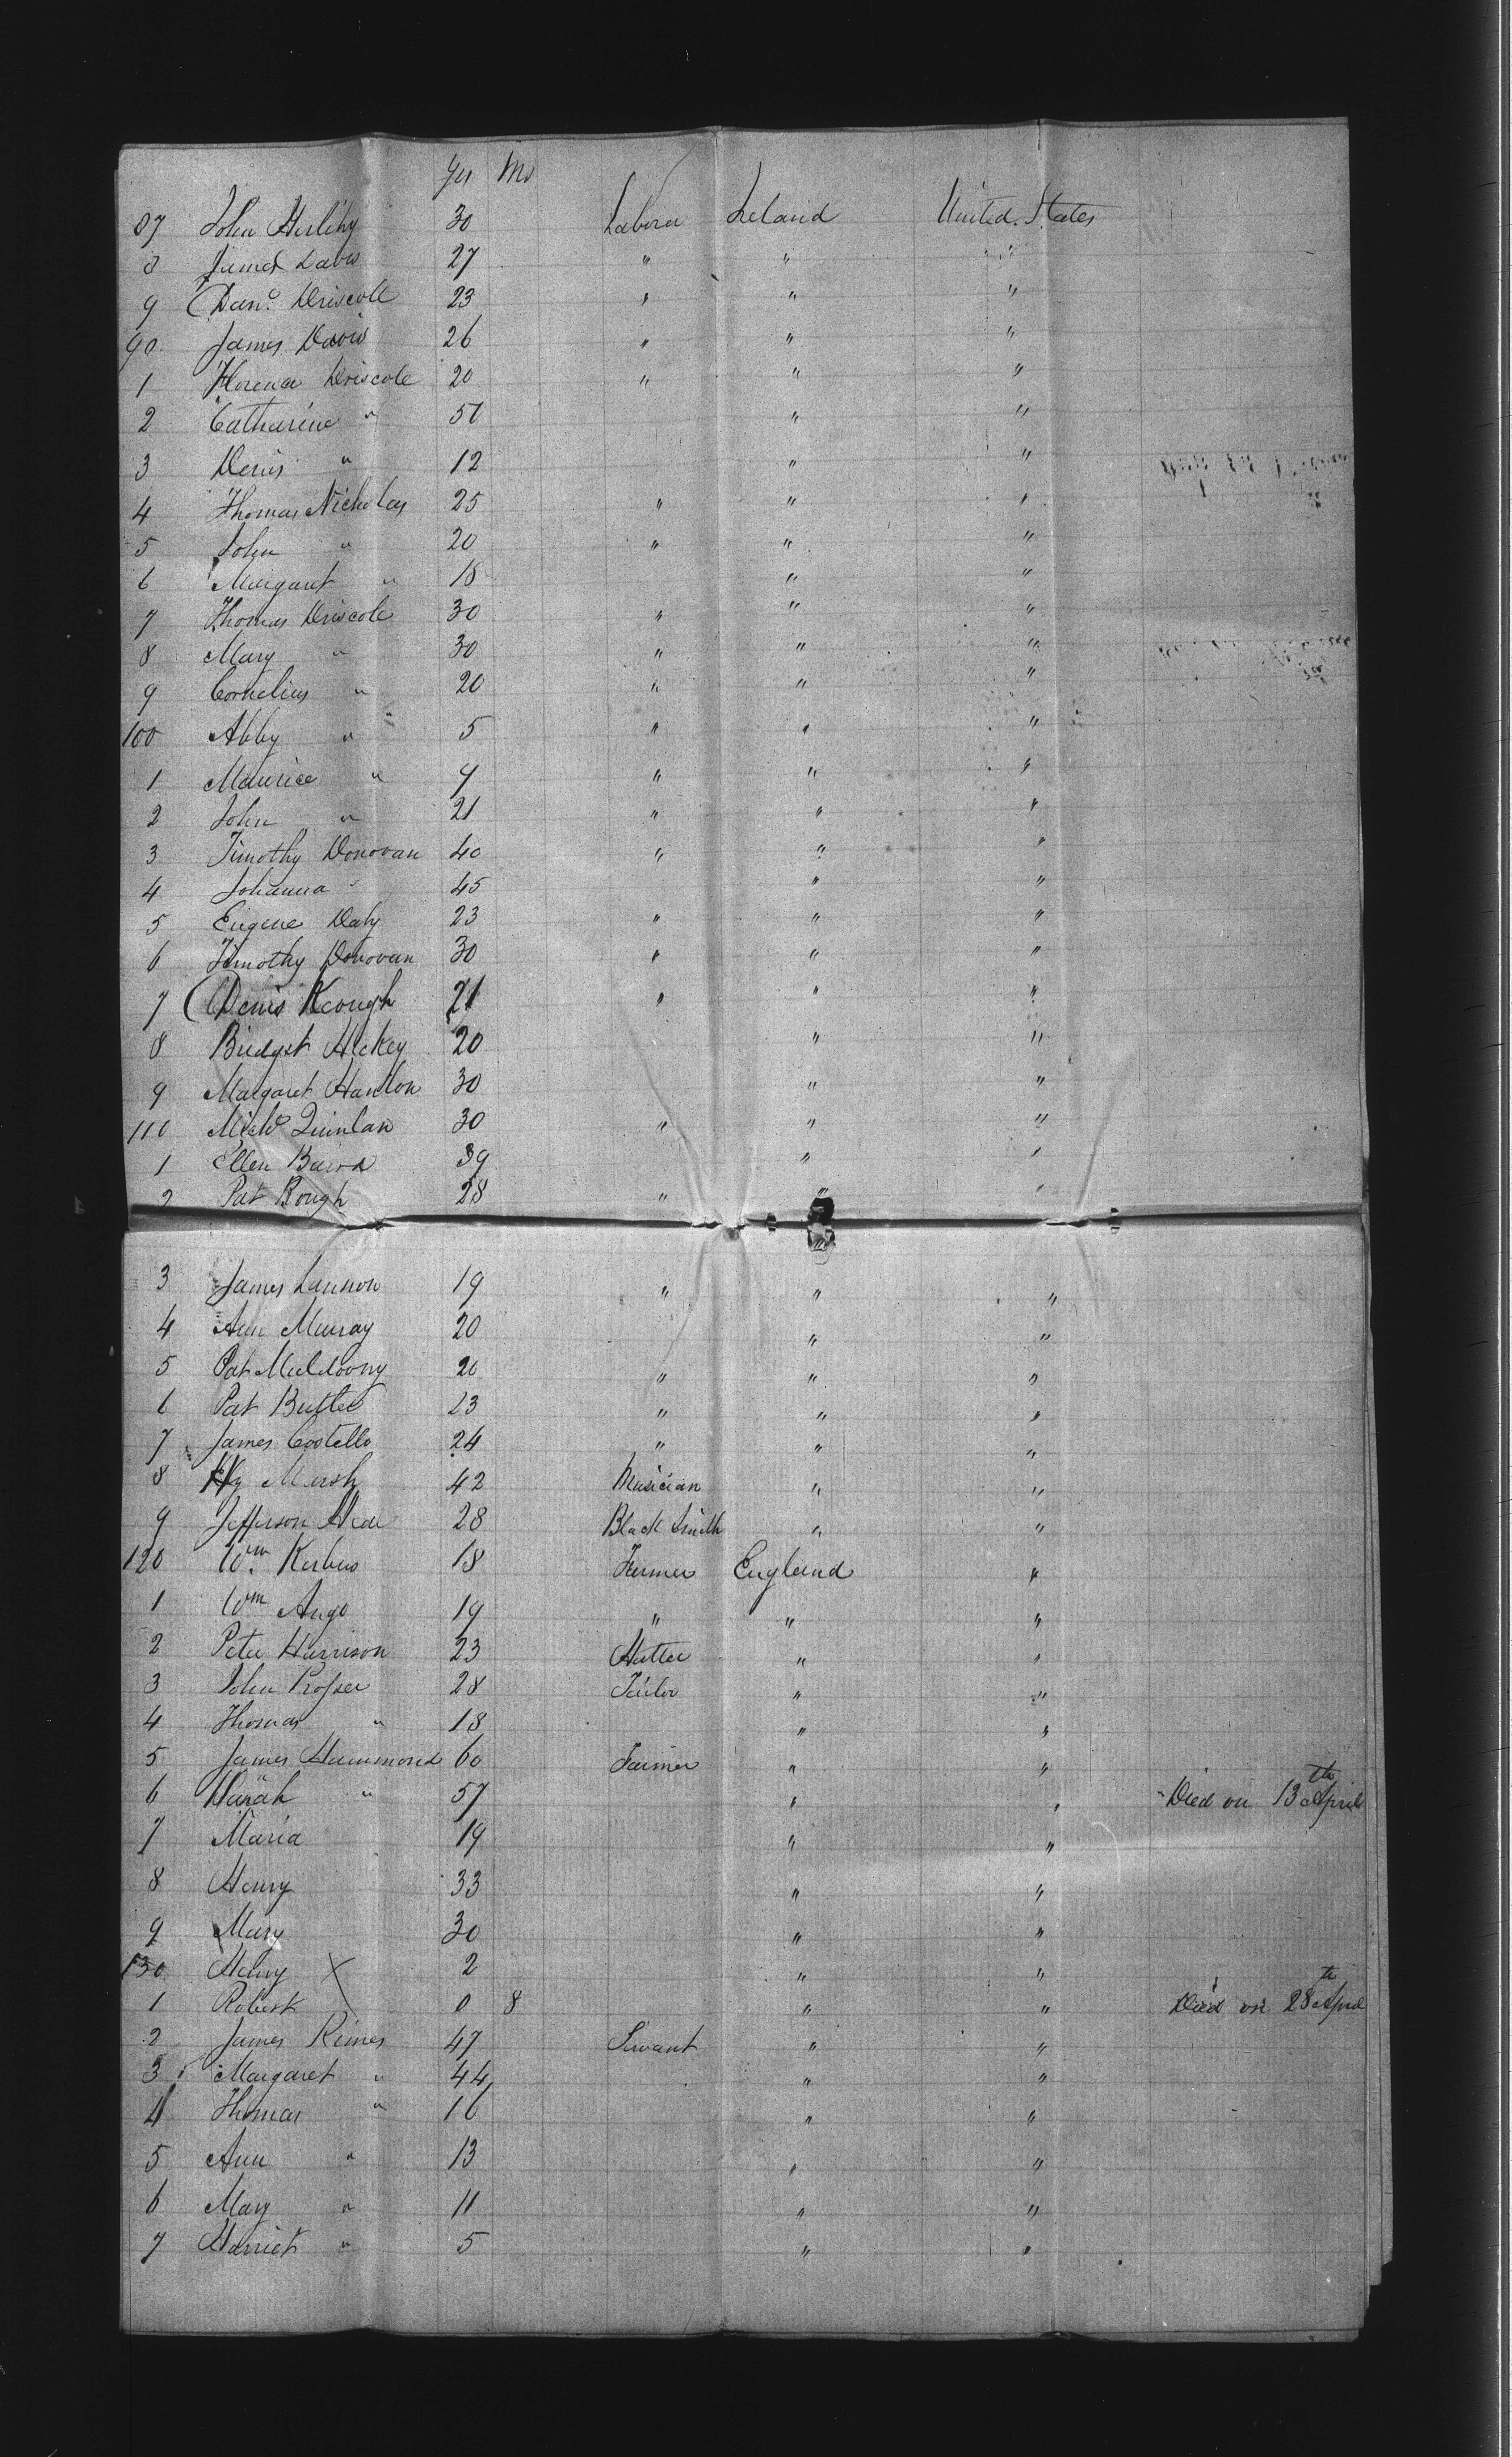 Yrs Mo
87 John Herlihy 30 Laborer Ireland United States
8 James Davis 27 " " "
9 Danl. Driscole 23 " " "
90 James Davis 26 " " "
1 Florence Driscole 20 " " "
2 Catharine " 50 " "
3 Denis " 12 " "
4 Thomas Nicholas 25 " " "
5 John " 20 " " "
6 Margaret " 18 " "
7 Thomas Driscole 30 " " "
8 Mary " 30 " " "
9 Cornelius " 20 " " "
100 Abby " 5 " " "
1 Maurice " 9 " " "
2 John " 21 " " "
3 Timothy Donovan 40 " " "
4 Johanna " 45 " "
5 Eugene Daly 23 " " "
6 Timothy Donovan 30 " " "
7 Denis Keough 21 " " "
8 Bridget Hickey 20 " "
9 Margaret Hanlon 30 " "
110 Michl Quinlan 30 " " "
1 Ellen 39 " "
2 Pat Bough 28 " " "
3 James Lannon 19 " " "
4 Ann Murray 20 " "
5 Pat Muldowny 20 " " "
6 Pat Butler 23 " " "
7 James Costello 24 " " "
8 Hy Marsh 42 Musician " "
9 Jefferson 28 Black Smith " "
120 Wm. 18 Farmer England "
1 Wm Ango 19 " " "
2 Peter Harrison 23 Hatter " "
3 John Prosser 28 Tailor " "
4 Thomas " 18 " "
5 James Hammond 60 Farmer " "
6 Sarah " 57 " " Died on 13th April
7 Maria 19 " "
8 Henry 33 " "
9 Mary 30 " "
130 Henry X 2 " "
1 Robert 0 8 " " Died on 28th April
2 James Rimes 47 Servant " "
3 Margaret " 44 " "
4 Thomas " 16 " "
5 Ann " 13 " "
6 Mary " 11 " "
7 Harriet " 5 " "